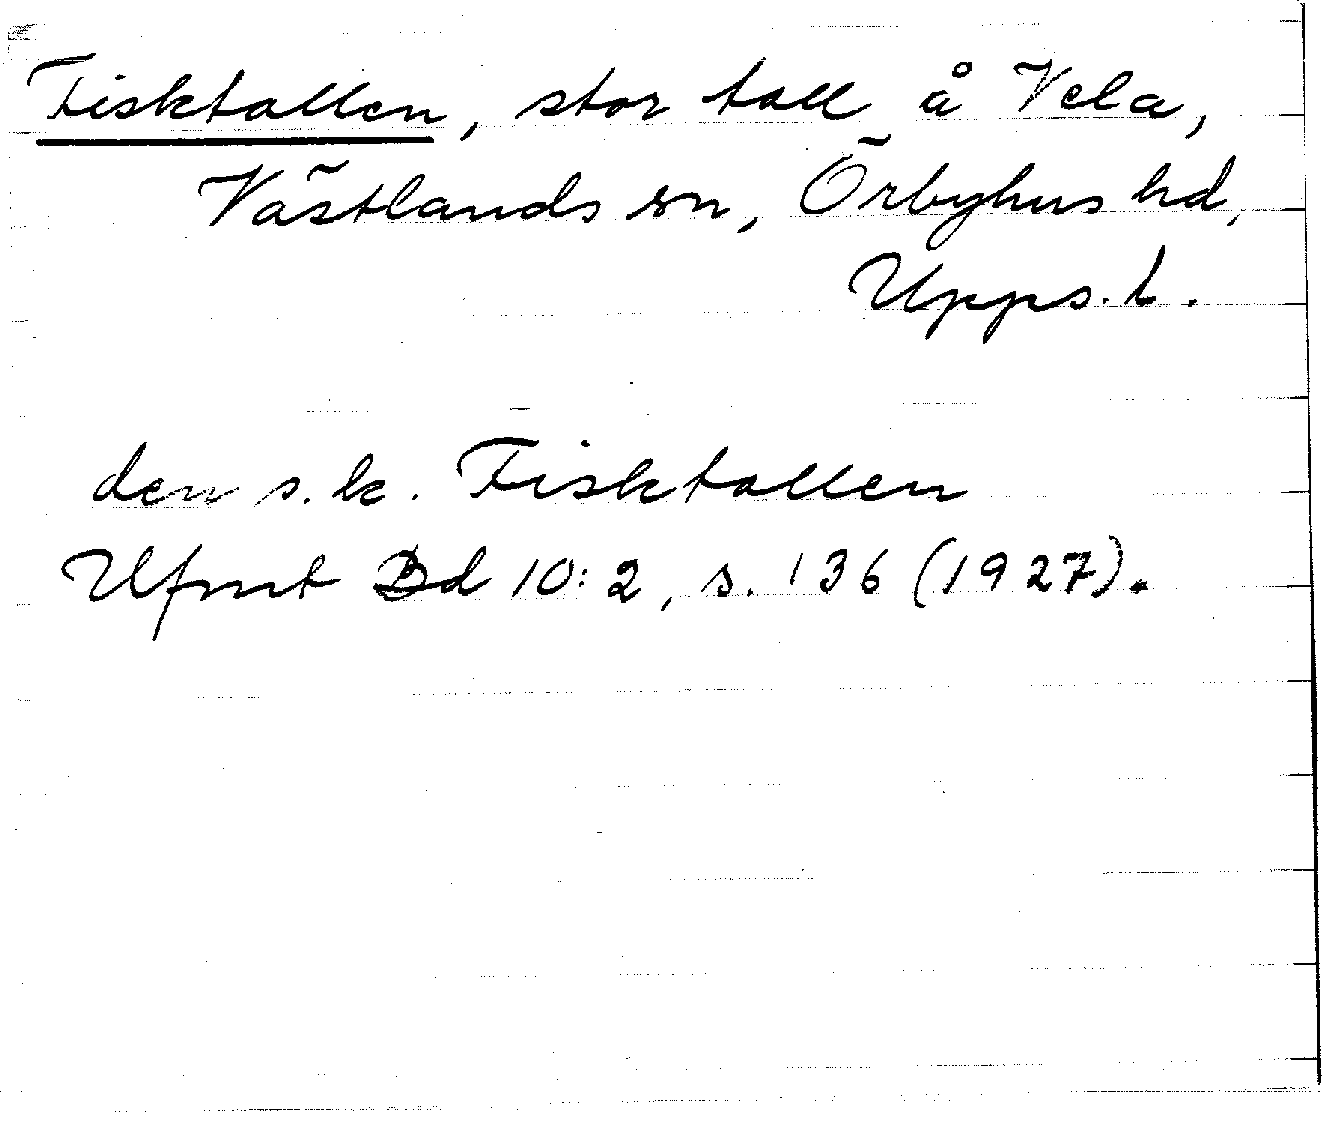 Fisktallen, stor tall å Vela,
Västlands sn, Örbyhus hd,
Upps. l.
den s.k. Fisktallen
Ufmt Bd 10:2, s. 136 (1927).